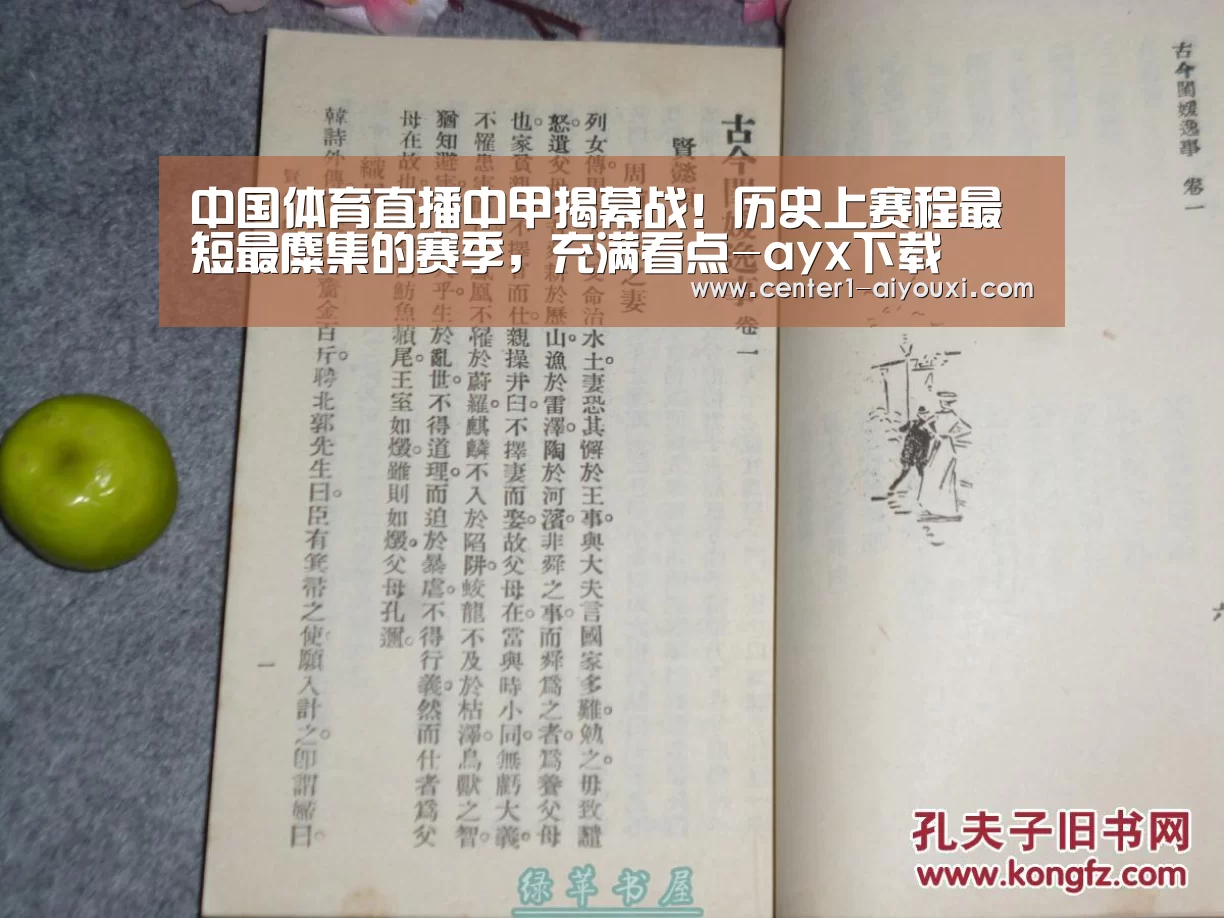 中国体育直播中甲揭幕战！历史上赛程最
短最麇集的赛季，充满看点-ayx下载
www.center1-aiyouxi.com
古今閨媛逸事 卷一
古今閨媛逸事卷一
賢懿
周 之妻
列女傳 命治水土。妻恐其懈於王事。與大夫言國家多難。勉之。毋致譴
怒遺父母 於歷山。漁於雷澤。陶於河濱。非舜之事。而舜爲之者。爲養父母
也。家貧親 不擇官而仕。親操井臼。不擇妻而娶。故父母在。當與時小同。無虧大義。
不罹患害 鳳凰不罹於蔚羅。麒麟不入於陷阱。蛟龍不及於枯澤。鳥獸之智。
猶知避害 乎。生於亂世。不得道理。而迫於暴虐。不得行義。然而仕者。爲父
母在故也 魴魚赬尾。王室如燬。雖則如燬。父母孔邇。
織
韓詩外傳 金百斤。聘北郭先生。曰。臣有箕帚之使。願入計之。卽謂婦曰。
賢
一
绿苹书屋
孔夫子旧书网
www.kongfz.com